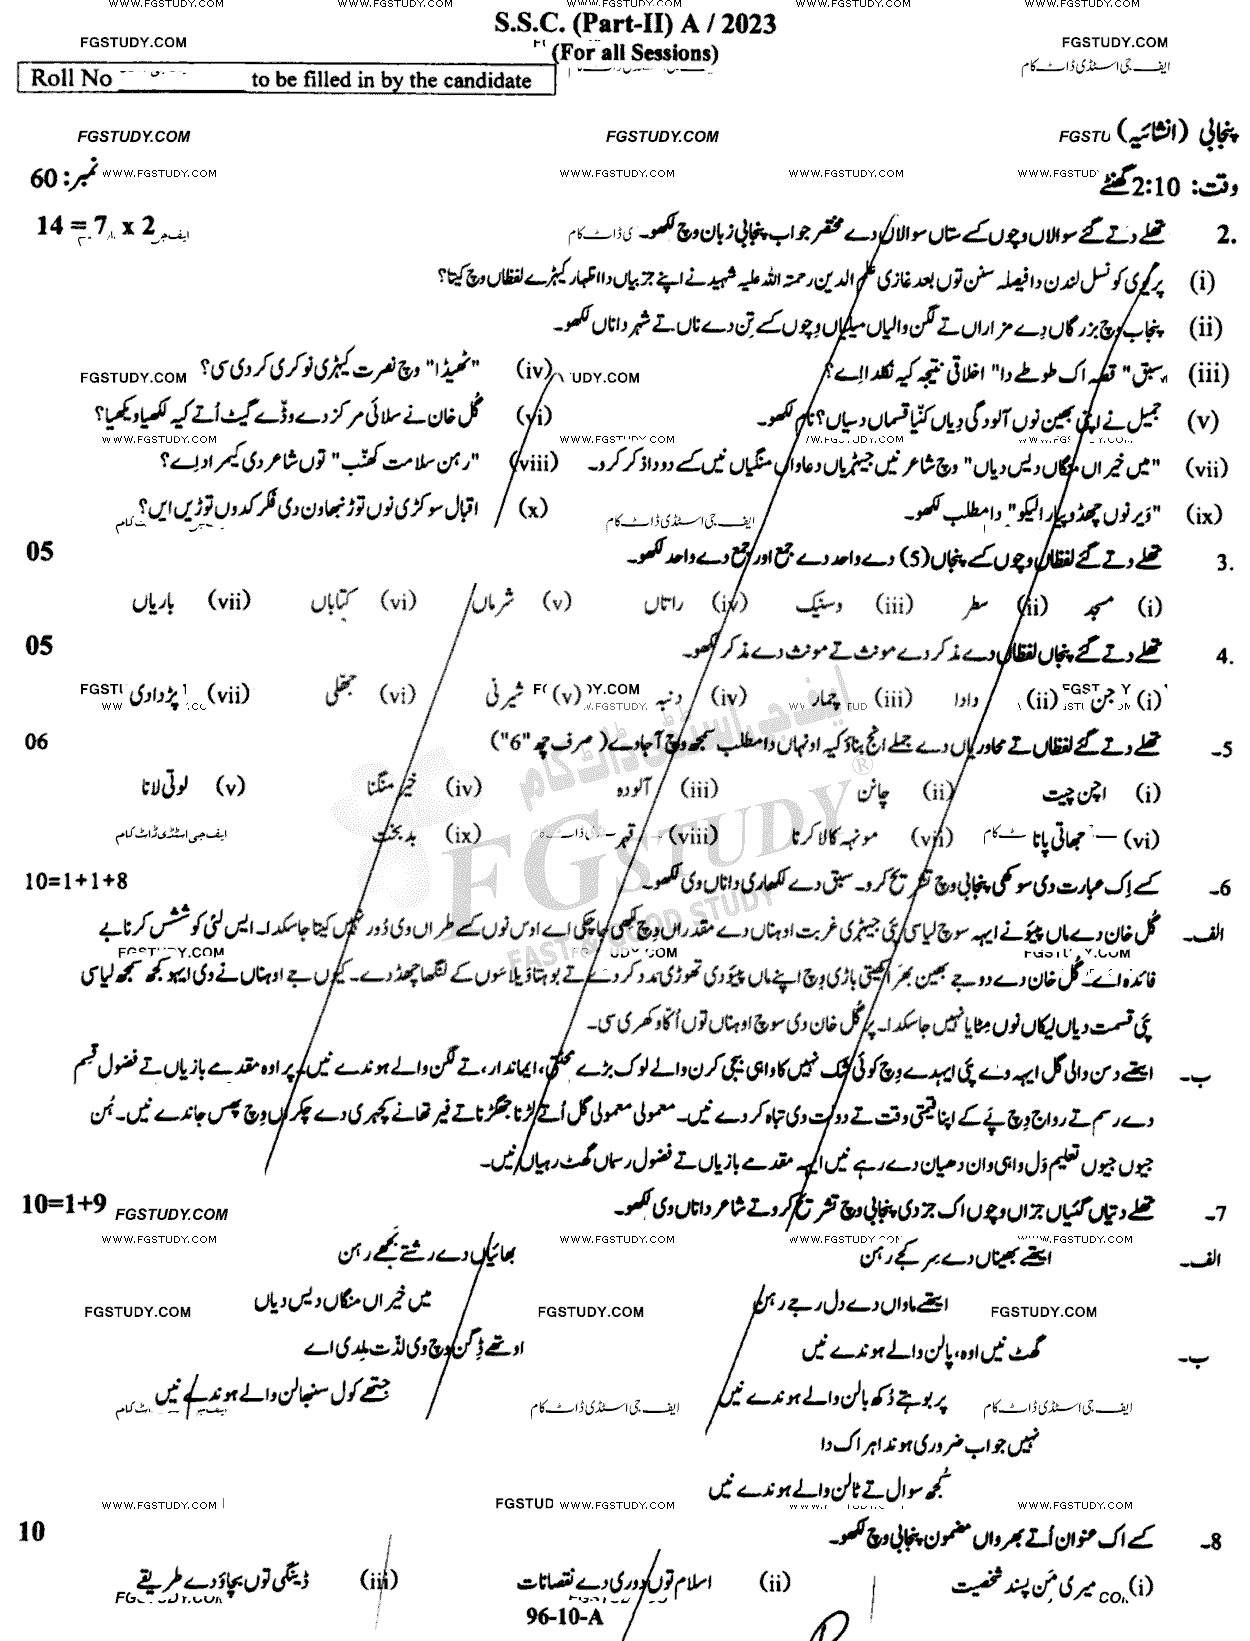 S.S.C. (Part-II) A / 2023
(For all Sessions)
Roll No ____________ to be filled in by the candidate
پنجابی (انشائیہ)
وقت: 2:10 گھنٹے نمبر: 60
2. تھلے دتے گئے سوالاں وچوں کے ستاں سوالاں دے مختصر جواب پنجابی زبان وچ لکھو۔ 14 = 7 x 2
(i) پریوی کونسل لندن دا فیصلہ سنن توں بعد غازی علم الدین رحمتہ اللہ علیہ شہید نے اپنے جزبیاں دا اظہار کیہڑے لفظاں وچ کیتا؟
(ii) پنجاب وچ بزرگاں دے مزاراں تے لگن والیاں میلیاں وچوں کے تِن دے ناں تے شہر دا ناں لکھو۔
(iii) سبق "قصہ اک طوطے دا" اخلاقی نتیجہ کیہ نکلدا اے؟ (iv) "ٹھیڈا" وچ نصرت کیہڑی نوکری کردی سی؟
(v) جمیل نے اپنی بھین نوں آلودگی دیاں کنیا قسماں دسیاں؟ نام لکھو۔ (vi) گل خان نے سلائی مرکز دے وڈے گیٹ اُتے کیہ لکھیا ویکھیا؟
(vii) "میں خیراں منگاں دیس دیاں" وچ شاعر نیں جیہڑیاں دعاواں منگیاں نیں کے دو دا ذکر کرو۔ (viii) "رہن سلامت کھنّب" توں شاعر دی کیہ مراد اے؟
(ix) "ویر نوں چھڈو پیار الیکو" دا مطلب لکھو۔ (x) اقبال سوکڑی نوں توڑ نبھاون دی فکر کدوں توڑیں ایں؟
3. تھلے دتے گئے لفظاں وچوں کے پنجاں (5) دے واحد دے جمع اور جمع دے واحد لکھو۔ 05
(i) مسجد (ii) سطر (iii) وسنیک (iv) راتاں (v) شرماں (vi) کتاباں (vii) باریاں
4. تھلے دتے گئے پنجاں لفظاں دے مذکر دے مونث تے مونث دے مذکر لکھو۔ 05
(i) جن (ii) دادا (iii) چمار (iv) دنبہ (v) شیرنی (vi) جھلّی (vii) پڑدادی
5۔ تھلے دتے گئے لفظاں تے محاوریاں دے جملے انج بناؤ کیہ اونہاں دا مطلب سمجھ وچ آجاوے (صرف چھ "6") 06
(i) اچن چیت (ii) چانن (iii) آلودہ (iv) خیر منگنا (v) لوتی لانا
(vi) جھاتی پانا (vii) مونہہ کالا کرنا (viii) قہر (ix) بدبخت
6۔ کسے اِک عبارت دی سوکھی پنجابی وچ تشریح کرو۔ سبق دے لکھاری دا ناں وی لکھو۔ 10=1+1+8
الف۔ گل خان دے ماں پیؤ نے ایہہ سوچ لیا سی پئی جیہڑی غربت اوہناں دے مقدراں وچ لکھی جا چکی اے اوس نوں کسے طراں وی دُور نہیں کیتا جاسکدا۔ ایس لئی کوشش کرنا بے
فائدہ اے۔ گل خان دے دوجے بھین بھرا کھیتی باڑی وچ اپنے ماں پیؤ دی تھوڑی مدد کردے تے بوہتا ویلا سَوں کے لنگھا چھڈدے۔ کیوں جے اوہناں نے وی ایہو کجھ سمجھ لیا سی
پئی قسمت دیاں لیکاں نوں مٹایا نہیں جاسکدا۔ پر گل خان دی سوچ اوہناں توں اُکا وکھری سی۔
ب۔ ایتھے دسن والی گل ایہہ وے پئی ایہدے وچ کوئی شک نہیں کا واہی بیجی کرن والے لوک بڑے محنتی، ایماندار، تے لگن والے ہوندے نیں۔ پر اوہ مقدمے بازیاں تے فضول قسم
دے رسم تے رواج وچ پَے کے اپنا قیمتی وقت تے دولت وی تباہ کردے نیں۔ معمولی معمولی گل اُتے لڑنا جھگڑنا تے فیر تھانے کچہری دے چکراں وچ پھس جاندے نیں۔ ہُن
جیوں جیوں تعلیم وَل واہی وان دھیان دے رہے نیں ایہہ مقدمے بازیاں تے فضول رسماں گھٹ رہیاں نیں۔
7۔ تھلے دتیاں گئیاں جزاں وچوں اک جز دی پنجابی وچ تشریح کرو تے شاعر دا ناں وی لکھو۔ 10=1+9
الف۔ ایتھے بھیناں دے سِر کجے رہن بھائیاں دے رشتے بجھے رہن
ایتھے ماواں دے دل رجے رہن میں خیراں منگاں دیس دیاں
ب۔ گھٹ نیں اوہ، پالن والے ہوندے نیں اوتھے ڈِگن وچ وی لذت ملدی اے
پر بوہتے دُکھ بالن والے ہوندے نیں جتھے کول سنبھالن والے ہوندے نیں
نہیں جواب ضروری ہوندا ہر اک دا
کُجھ سوال تے ٹالن والے ہوندے نیں
8۔ کسے اک عنوان اُتے بھرواں مضمون پنجابی وچ لکھو۔ 10
(i) میری مَن پسند شخصیت (ii) اسلام توں دوری دے نقصانات (iii) ڈینگی توں بچاؤ دے طریقے
96-10-A